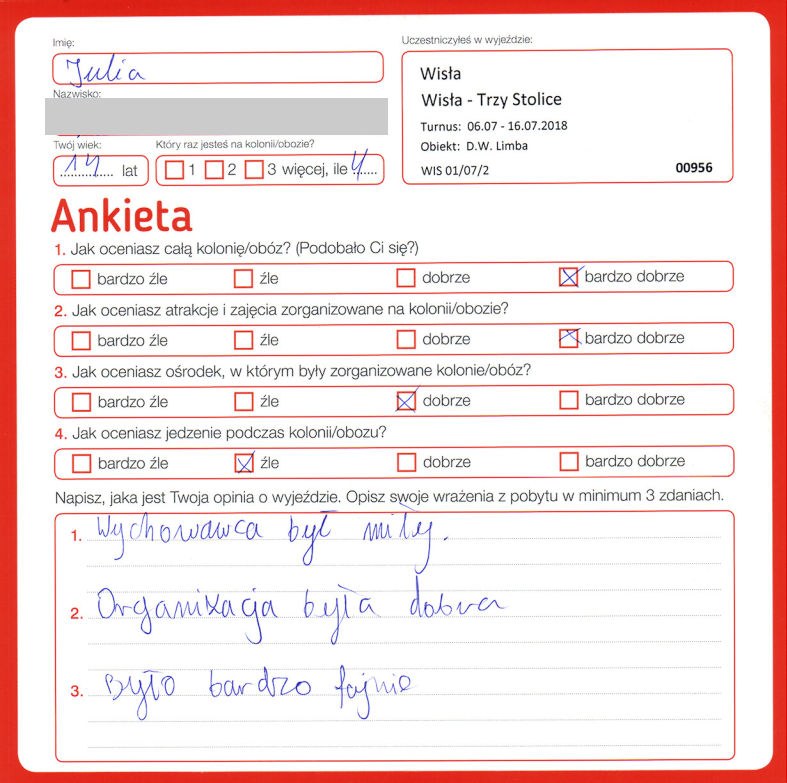 Imię:
Julia
Nazwisko:
Twój wiek:
14 lat
Który raz jesteś na kolonii/obozie?
1 2 3 więcej, ile 4
Uczestniczyłeś w wyjeździe:
Wisła
Wisła - Trzy Stolice
Turnus: 06.07 - 16.07.2018
Obiekt: D.W. Limba
WIS 01/07/2 00956
Ankieta
1. Jak oceniasz całą kolonię/obóz? (Podobało Ci się?)
bardzo źle źle dobrze bardzo dobrze
2. Jak oceniasz atrakcje i zajęcia zorganizowane na kolonii/obozie?
bardzo źle źle dobrze bardzo dobrze
3. Jak oceniasz ośrodek, w którym były zorganizowane kolonie/obóz?
bardzo źle źle dobrze bardzo dobrze
4. Jak oceniasz jedzenie podczas kolonii/obozu?
bardzo źle źle dobrze bardzo dobrze
Napisz, jaka jest Twoja opinia o wyjeździe. Opisz swoje wrażenia z pobytu w minimum 3 zdaniach.
1. Wychowawca był miły.
2. Organizacja była dobra
3. Było bardzo fajnie